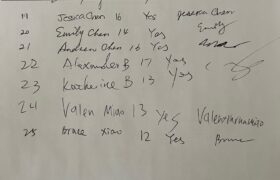 19 Jessica Chen 16 Yes Jessica Chen
20 Emily Chen 14 Yes Emily
21 Andrew Chen 16 Yes
22 Alexander B 17 Yes
23 Katherine B 13 Yes
24 Valen Miao 13 yes
25 Grace Xiao 12 Yes